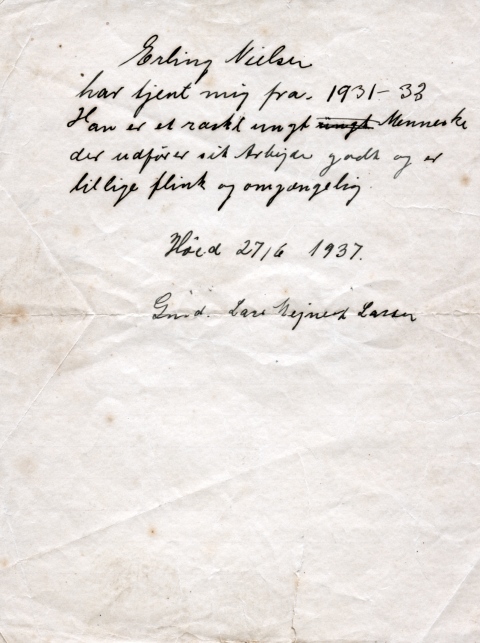 Erling Nielsen
har tjent mig fra. 1931-33
Han er et raskt ungt ungt Menneske
der udfører sit Arbejde godt og er
tillige flink og omgængelig.
27/6 1937.
Gmd. Lars Larsen